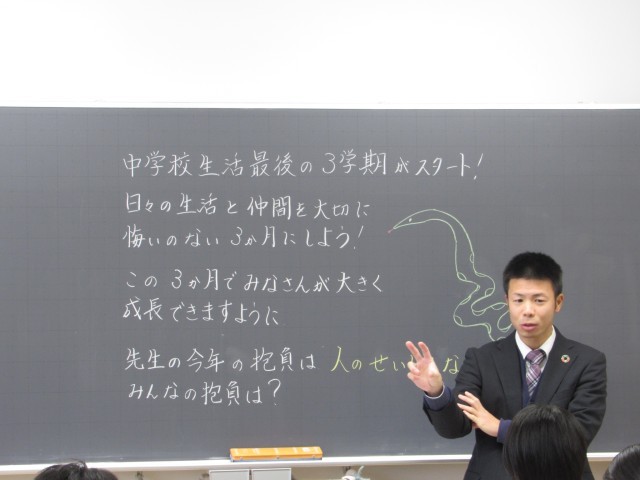 中学校生活最後の3学期がスタート!
日々の生活と仲間を大切に
悔いのない3か月にしよう!
この3か月でみなさんが大きく
成長できますように
先生の今年の抱負は 人のせい な
みんなの抱負は?